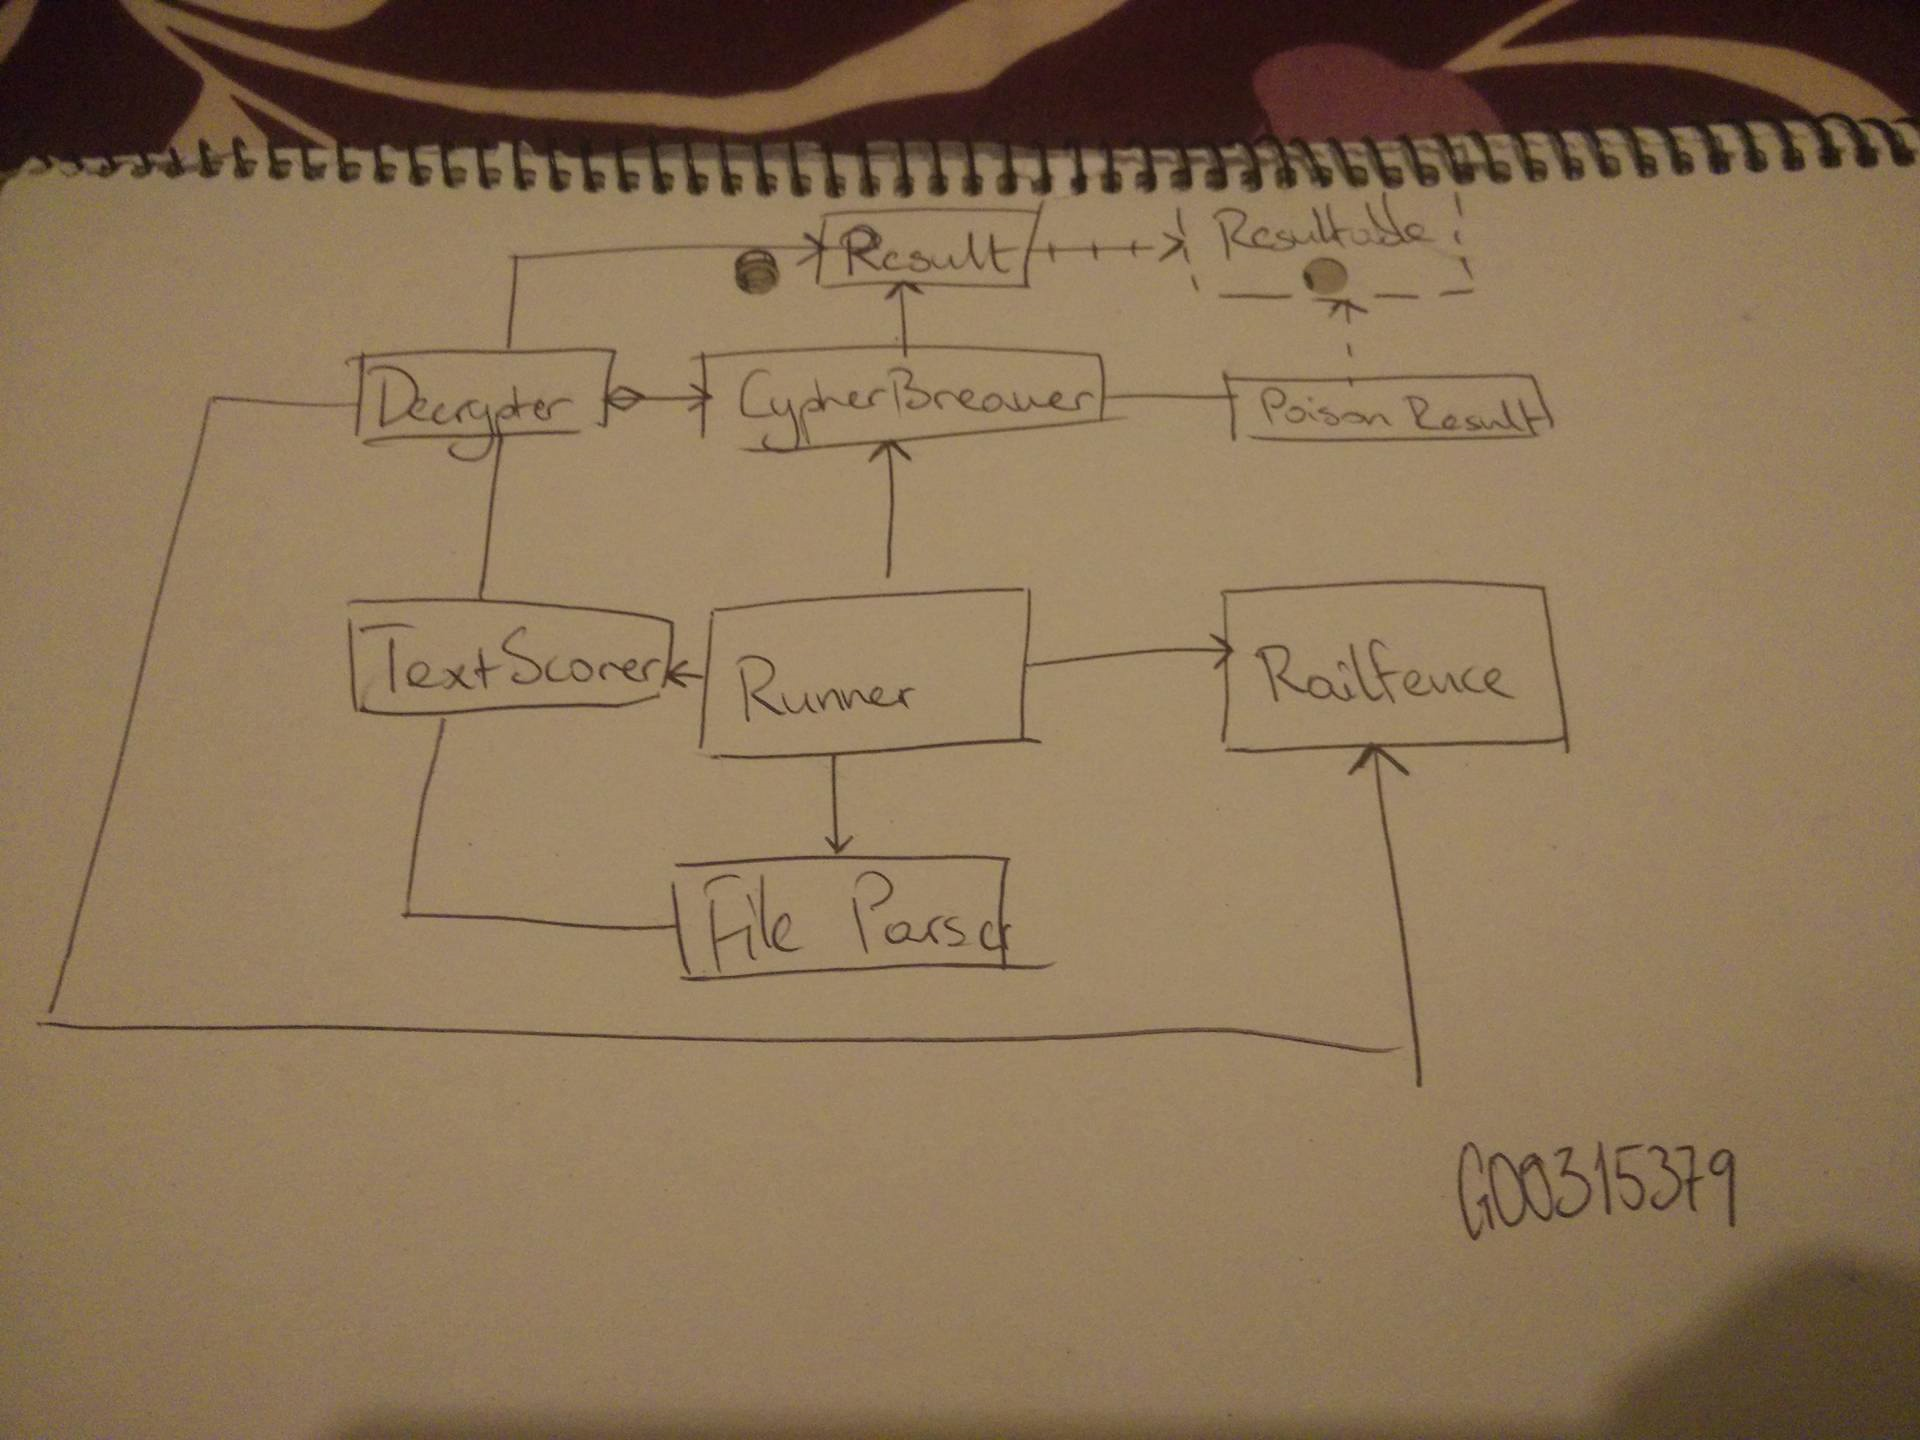 Result
Resultable
Decrypter
CypherBreaker
Poison Result
TextScorer
Runner
Railfence
File Parser
G00315379